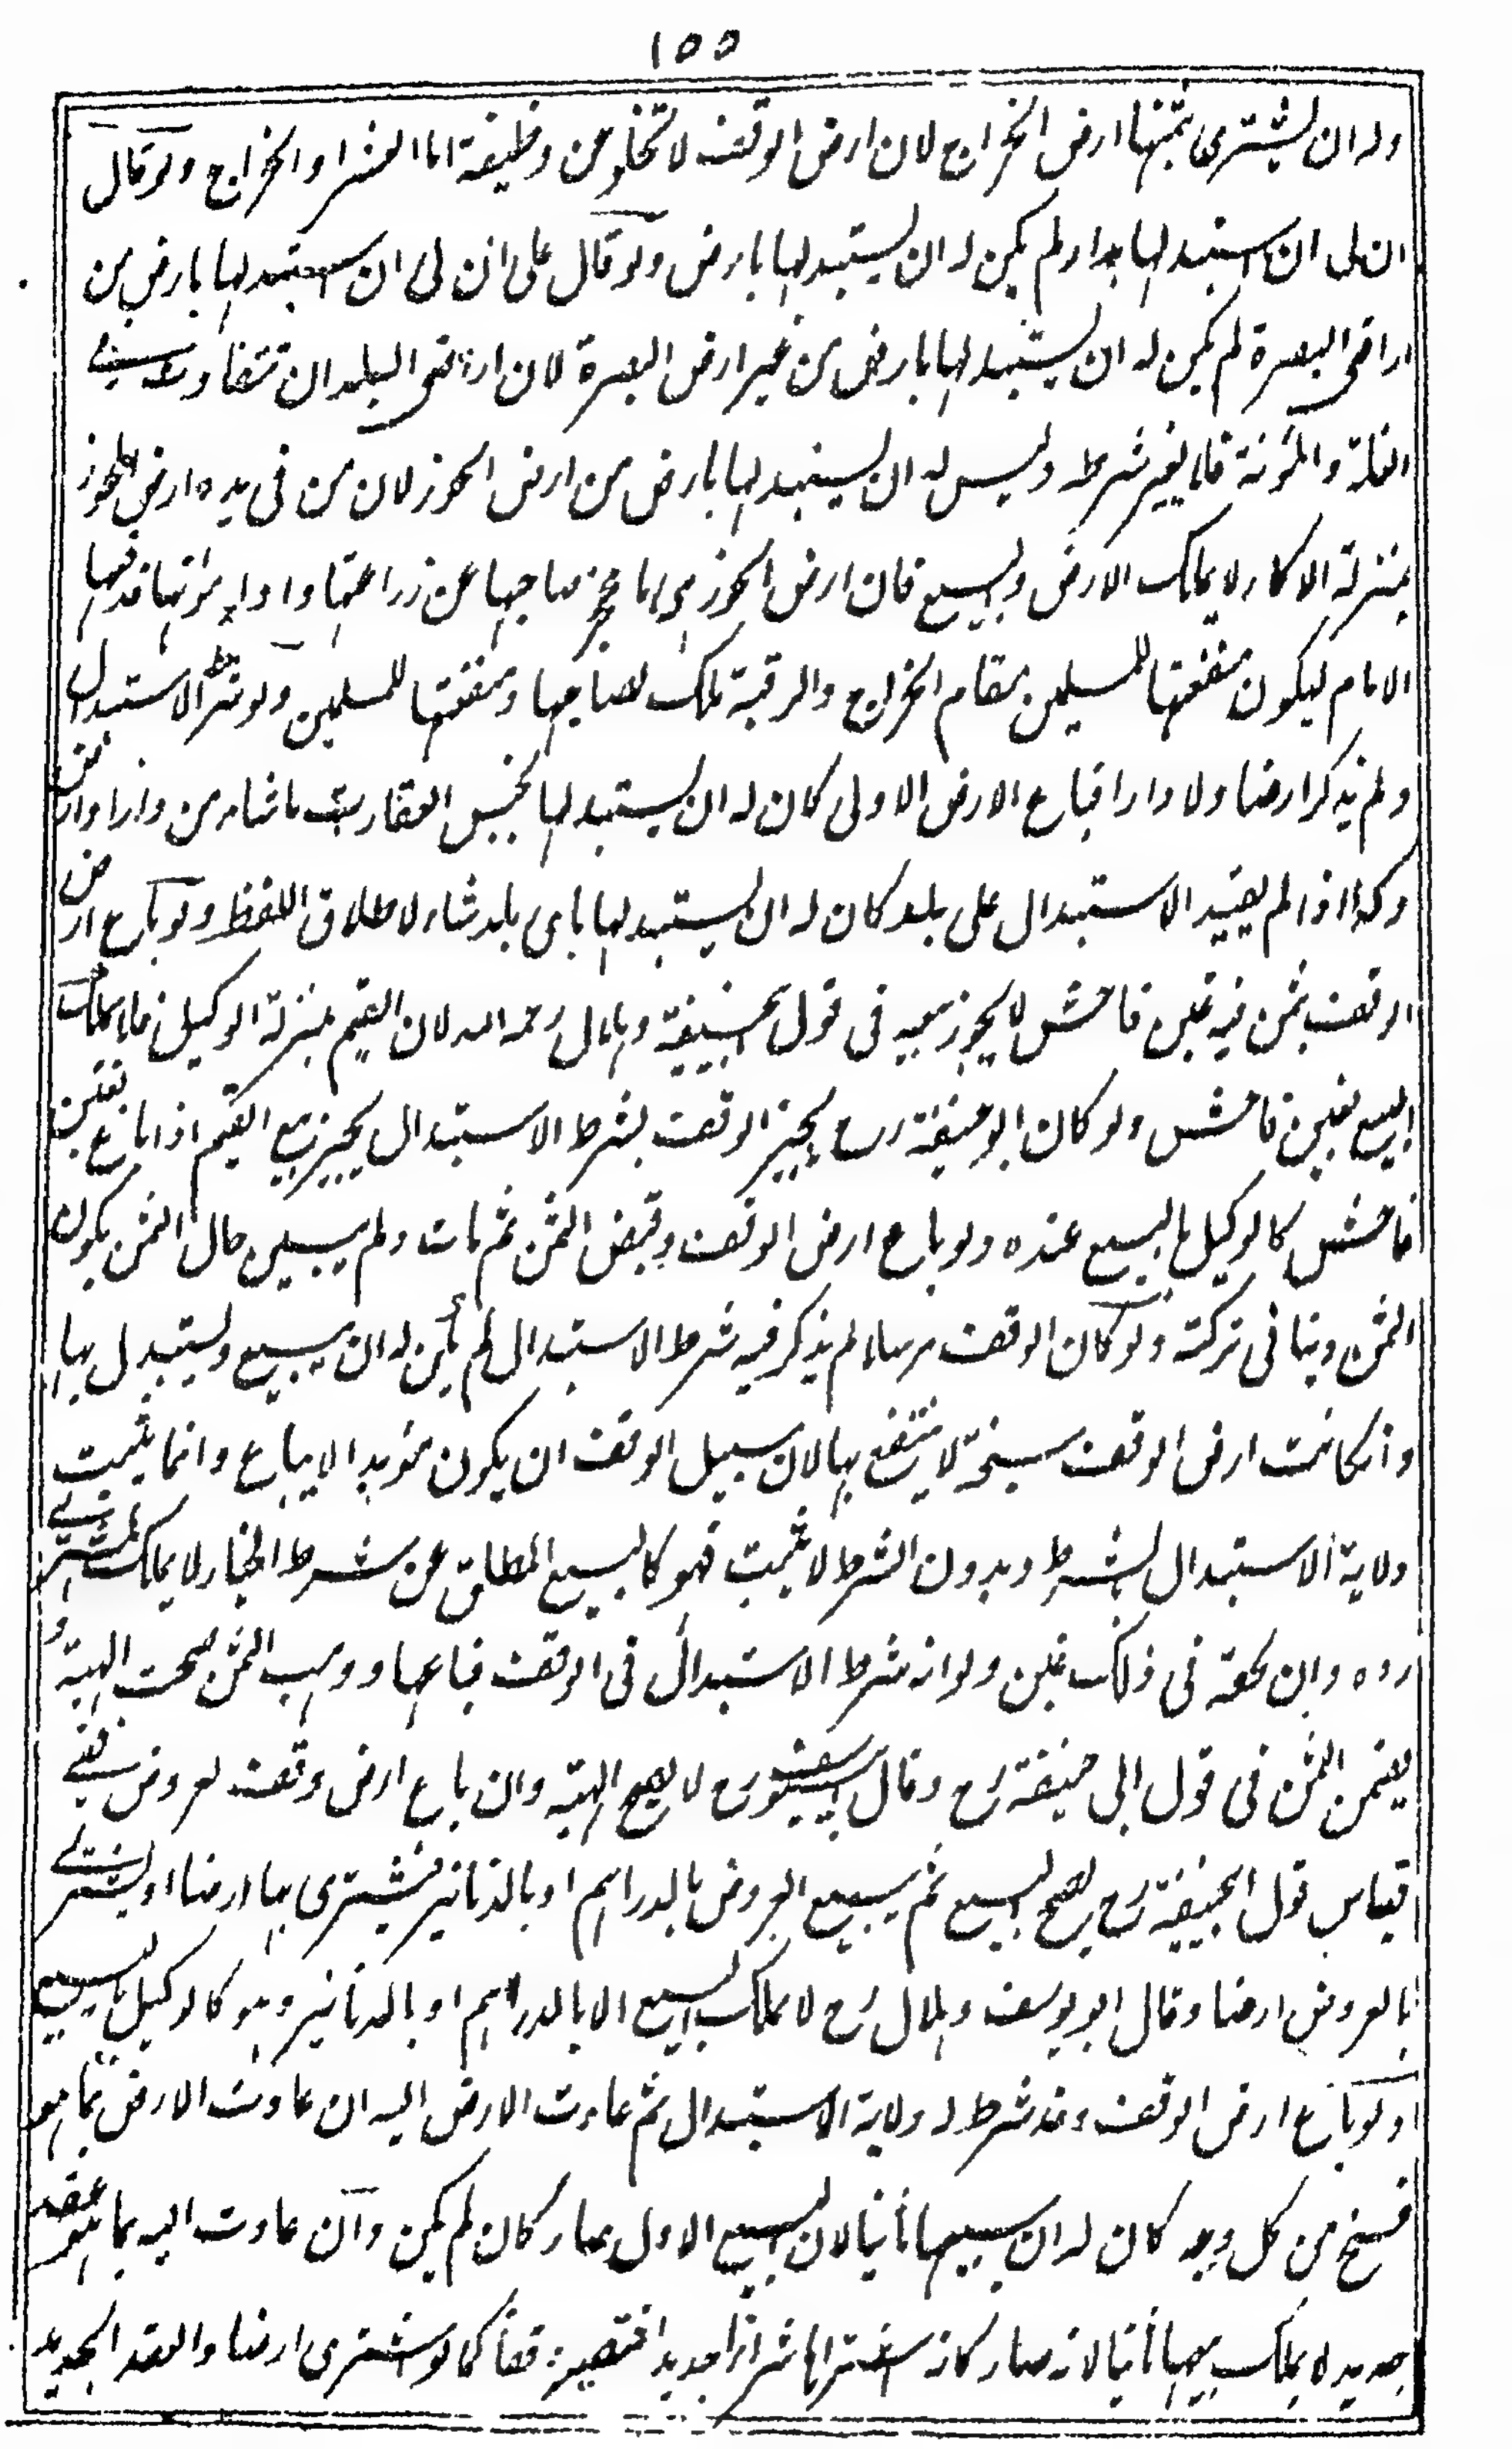 ١٥٥
وله ان يشترى بثمنها ارض الخراج لان ارض الوقف لا تخلو عن وظيفة اما العشر او الخراج ولو قال
ان لى ان استبدلها بدار لم يكن له ان يستبدلها بارض ولو قال على ان لى ان استبدلها بارض من
اراضى البصرة لم يكن له ان يستبدلها بارض من غير ارض البصرة لان اراضى البلدان تتفاوت فى
الغلة والمؤنة فلا يغير شرطه وليس له ان يستبدلها بارض من ارض الحوز لان من فى يده ارض الحوز
بمنزلة الاكار لا يملك الارض والبيع فان ارض الحوز هى ما عجز صاحبها عن زراعتها واداء مؤنتها فدفعها
الامام ليكون منفعتها للمسلمين مقام الخراج والرقبة ملك لصاحبها ومنفعتها للمسلمين ولو شرط الاستبدال
ولم يذكر ارضا ولا دارا فباع الارض الاولى كان له ان يستبدلها بجنس العقارات ما شاء من دار او ارض
وكذا اذا لم يقيد الاستبدال على بلد كان له ان يستبدلها باى بلد شاء لاطلاق اللفظ ولو باع ارض
الوقف بثمن فيه غبن فاحش لا يجوز بيعه فى قول ابيحنيفة وهلال رحمه الله لان القيم بمنزلة الوكيل فلا يملك
البيع بغبن فاحش ولو كان ابو حنيفة رح يجيز الوقف بشرط الاستبدال يجيز بيع القيم اذا باع بغبن
فاحش كالوكيل بالبيع عنده ولو باع ارض الوقف وقبض الثمن ثم مات ولم يبين حال الثمن يكون
الثمن دينا فى تركته ولو كان الوقف مرسلا لم يذكر فيه شرط الاستبدال لم يكن له ان يبيع ويستبدل بها
وانكانت ارض الوقف سبخة لا ينتفع بها لان سبيل الوقف ان يكون مؤبدا لا يباع وانما يثبت
ولاية الاستبدال بشرط وبدون الشرط لا يثبت فهو كالبيع المطلق عن شرط الخيار لا يملك المشترى
رده وان لحقه فى ذلك غبن ولو انه شرط الاستبدال فى الوقف فباعها ووهب الثمن صحت الهبة و
يضمن الثمن فى قول ابى حنيفة رح وقال ابو يوسف رح لا يصح الهبة وان باع ارض وقف بعروض ففى
قياس قول ابيحنيفة رح يصح البيع ثم يبيع العروض بالدراهم او بالدنانير فيشترى بها ارضا او يشترى
بالعروض ارضا وقال ابو يوسف وهلال رح لا يملك البيع الا بالدراهم او بالدنانير وهو كالوكيل بالبيع
ولو باع ارض الوقف وقد شرط له ولاية الاستبدال ثم عادت الارض اليه ان عادت الارض بما هو
فسخ من كل وجه كان له ان يبيعها ثانيا لان البيع الاول صار كان لم يكن وان عادت اليه بما هو عقد
جديد لا يملك بيعها ثانيا لانه صار كانه اشتراها شراءا جديدا فتصير وقفا كما لو اشترى ارضا والعقد الجديد